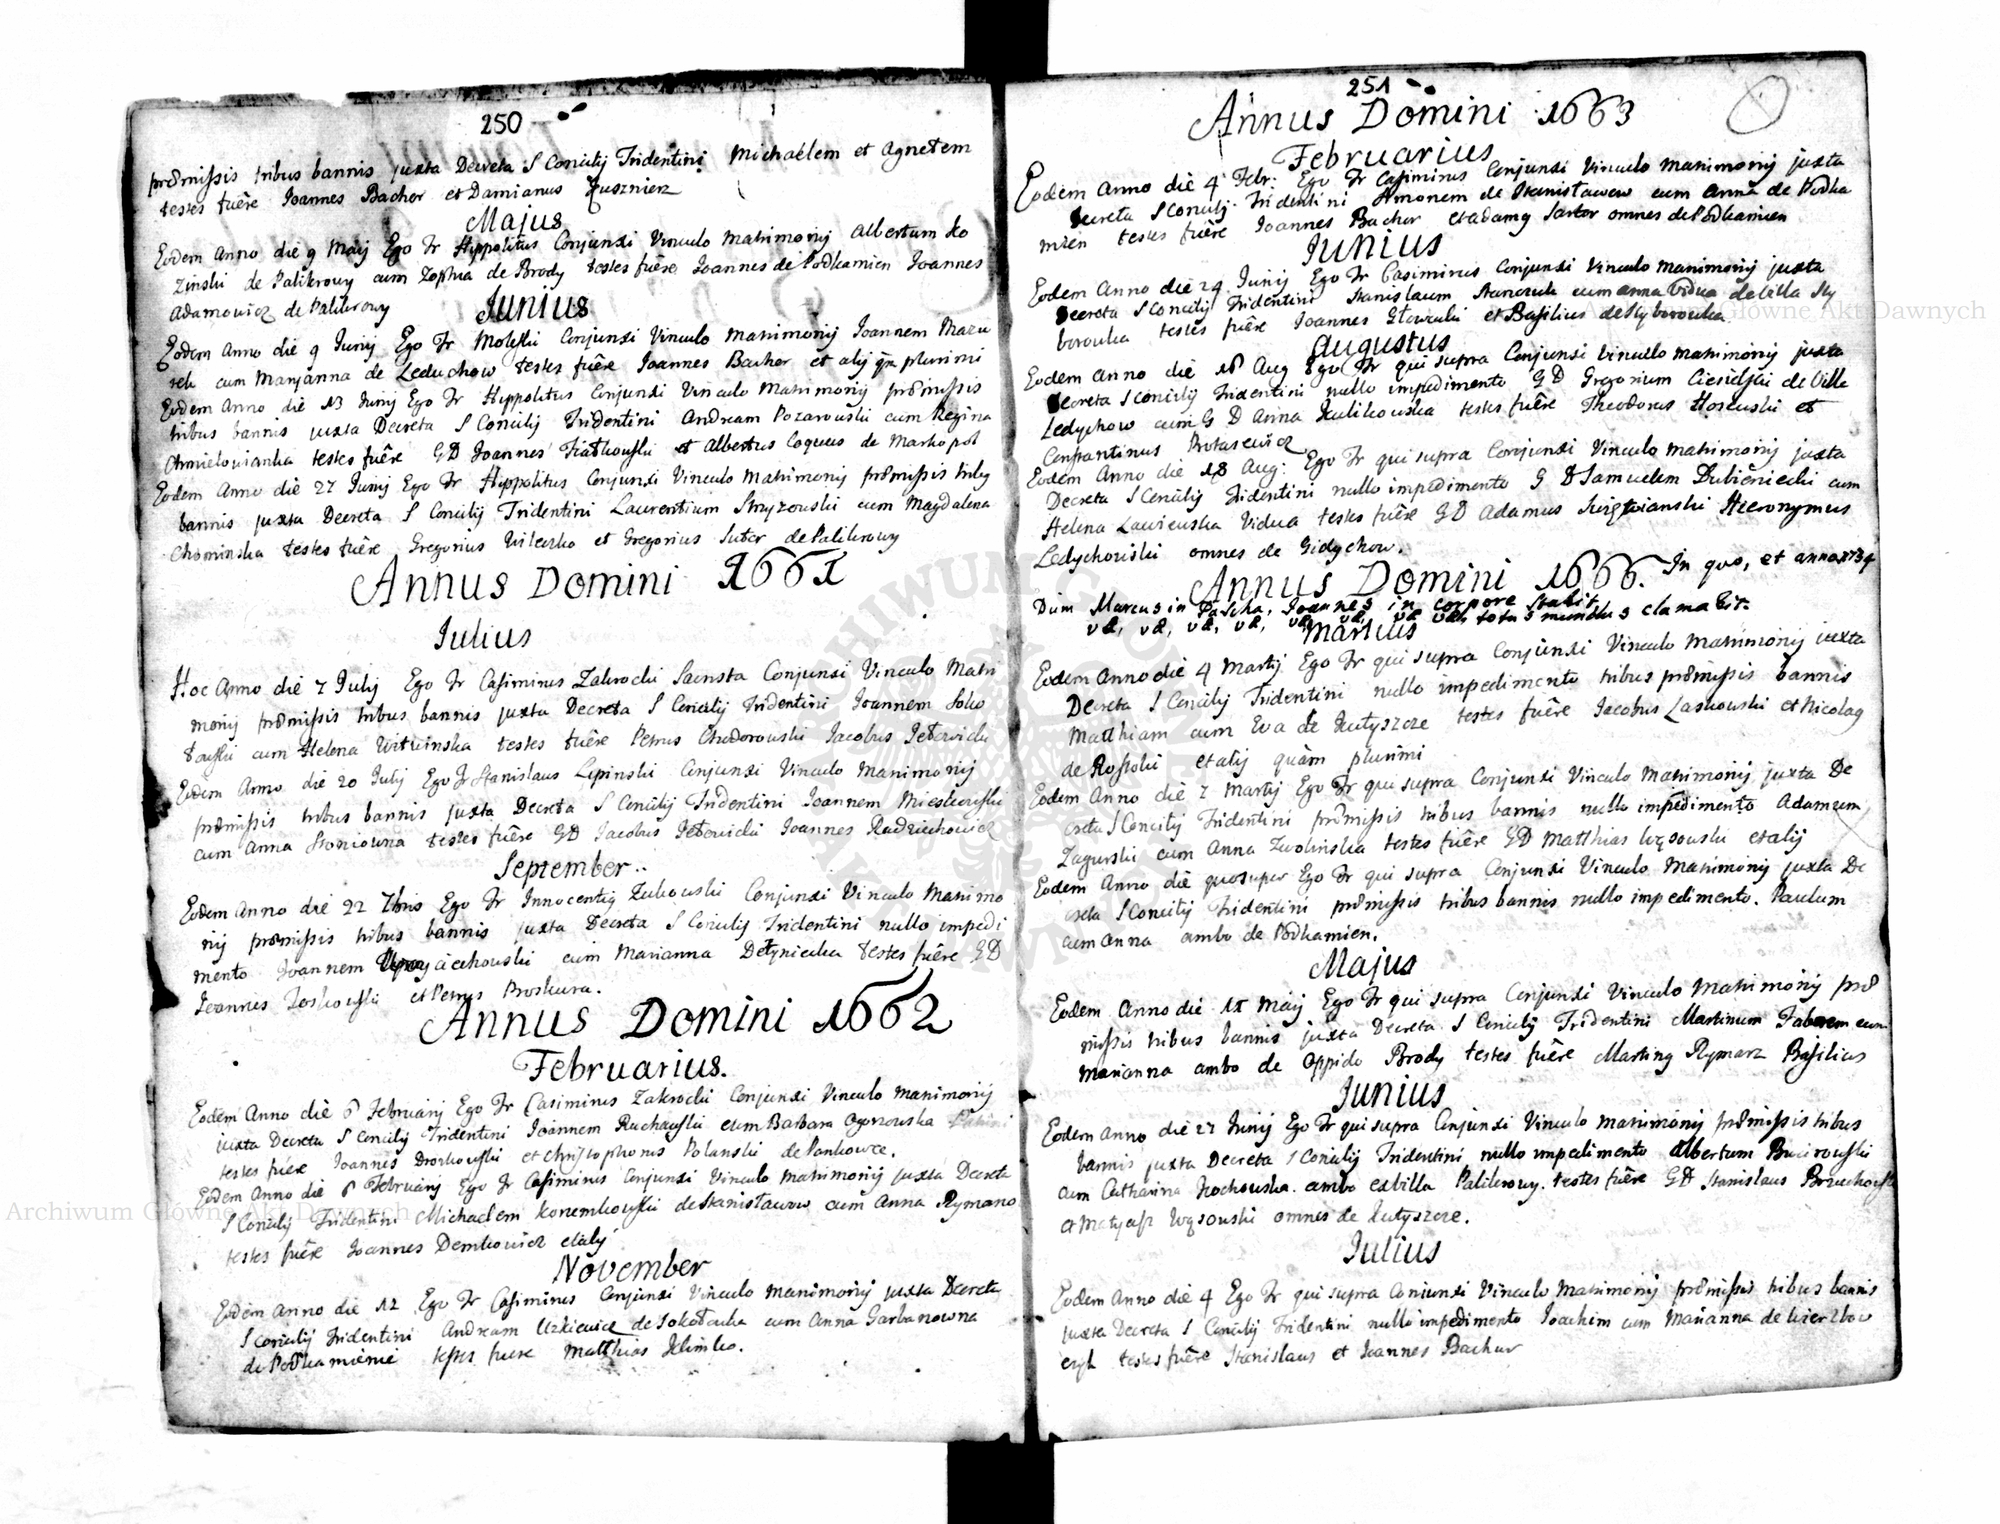 250
præmissis tribus bannis juxta Decreta S Concilij Tridentini Michaëlem et Agnetem
testes fuêre Joannes Bachor et Damianus Kusznierz
Majus
Eodem Anno die 9 Maij Ego Fr Hippolitus Conjunxi Vinculo Matrimonij Albertum Ko
zinski de Palikrowy cum Zophia de Brody testes fuêre Joannes de Podkamien Joannes
Adamowicz de Palikrowy
Junius
Eodem Anno die 9 Junij Ego Fr Conjunxi Vinculo Matrimonij Joannem Mazu
rek cum Marjanna de Leduchow testes fuêre Joannes Bachor et alij qm plurimi
Eodem Anno die 13 Junij Ego Fr Hippolitus Conjunxi Vinculo Matrimonij præmissis
tribus bannis juxta Decreta S Concilij Tridentini Andream Pozarowski cum Regina
Chmielowianka testes fuêre GD Joannes et Albertus Coqueus de Markopol
Eodem Anno die 27 Junij Ego Fr Hippolitus Conjunxi Vinculo Matrimonij præmissis tribq
bannis juxta Decreta S Concilij Tridentini Laurentium Stryzowski cum Magdalena
Chominska testes fuêre Gregorius Wileczko et Gregorius Sutor de Palikrowy
Annus Domini 1661
Julius
Hoc Anno die 7 Julij Ego Fr Casimirus Zakrocki Conjunxi Vinculo Matri
monij præmissis tribus bannis juxta Decreta S Concilij Tridentini Joannem Soko
towski cum Helena Witwinska testes fuêre Petrus Chodorowski Jacobus Jełowicki
Eodem Anno die 20 Julij Ego Fr Stanislaus Lipinski Conjunxi Vinculo Matrimonij
præmissis tribus bannis juxta Decreta S Concilij Tridentini Joannem
cum Anna testes fuêre GD Jacobus Jełowicki Joannes Radziechowicz
September
Eodem Anno die 22 7bris Ego Fr Innocentiq Zukowski Conjunxi Vinculo Matrimo
nij præmissis tribus bannis juxta Decreta S Concilij Tridentini nullo impedi
mento Joannem cum Marianna testes fuêre GD
Joannes et Petrus Proskura.
Annus Domini 1662
Februarius.
Eodem Anno die 6 Februarij Ego Fr Casimirus Zakrocki Conjunxi Vinculo Matrimonij
juxta Decreta S Concilij Tridentini Joannem Ruchawski cum Barbara Ogonowska
testes fuêre Joannes et Christophorus Polanski de Pankowce.
Eodem Anno die 6 Februarij Ego Fr Casimirus Conjunxi Vinculo Matrimonij juxta Decreta
S Concilij Tridentini Michaelem Konemkowski de Stanisławow cum Anna Rymano
testes fuêre Joannes Demkowicz et alij
November
Eodem Anno die 12 Ego Fr Casimirus Conjunxi Vinculo Matrimonij juxta Decreta
S Concilij Tridentini Andream Uzkiewicz de cum Anna Garbarowna
de Podkamienie testes fuere Matthias Klimko.
251
Annus Domini 1663
Februarius
Eodem Anno die 4 Febr: Ego Fr Casimirus Conjunxi Vinculo Matrimonij juxta
Decreta S Concilij Tridentini Simonem de Stanisławow cum Anna de Podka
mien testes fuêre Joannes Bachor et Adamq Sartor omnes de Podkamien
Junius
Eodem Anno die 24 Junij Ego Fr Casimirus Conjunxi Vinculo Matrimonij juxta
Decreta S Concilij Tridentini Stanislaum cum Anna Vidua de Villa Hy
borowka testes fuêre Joannes Głowacki et Basilius de Hyborowka
Augustus
Eodem Anno die 18 Aug Ego Fr qui supra Conjunxi Vinculo Matrimonij juxta
Decreta S Concilij Tridentini nullo impedimento GD Gregorium Ciesielski de Villa
Ledychow cum GD Anna Kulikowska testes fuêre Theodorus et
Constantinus Protasewicz
Eodem Anno die 18 Aug: Ego Fr qui supra Conjunxi Vinculo Matrimonij juxta
Decreta S Concilij Tridentini nullo impedimento GD Samuelem Dubieniecki cum
Helena Vidua testes fuêre GD Adamus Hieronymus
Ledychowski omnes de Gidychow.
Annus Domini 1666. In quo, et anno 1734
Dum Marcus in Pascha, Joannes in corpore stabit,
væ, væ, væ, væ, væ, væ, væ væ, totus mundus clamabit.
Martius
Eodem Anno die 4 Martij Ego Fr qui supra Conjunxi Vinculo Matrimonij juxta
Decreta S Concilij Tridentini nullo impedimento tribus præmissis bannis
Matthiam cum Eva de Kutyszcze testes fuêre Jacobus Laskowski et Nicolaq
de Rostoki et alij quàm plurimi
Eodem Anno die 7 Martij Ego Fr qui supra Conjunxi Vinculo Matrimonij juxta De
creta S Concilij Tridentini præmissis tribus bannis nullo impedimento Adamum
Zagurski cum Anna Zwolinska testes fuêre GD Matthias Wąsowski et alij
Eodem Anno die quo super Ego Fr qui supra Conjunxi Vinculo Matrimonij juxta De
creta S Concilij Tridentini præmissis tribus bannis nullo impedimento. Paulum
cum Anna ambo de Podkamien.
Majus
Eodem Anno die 11 Maij Ego Fr qui supra Conjunxi Vinculo Matrimonij præ
missis tribus bannis juxta Decreta S Concilij Tridentini Martinum Fabrem cum
Marianna ambo de Oppido Brody testes fuêre Martinq Rymarz Basilius
Junius
Eodem Anno die 27 Junij Ego Fr qui supra Conjunxi Vinculo Matrimonij præmissis tribus
bannis juxta Decreta S Concilij Tridentini nullo impedimento Albertum
cum Catharina Kochowska. ambo ex Villa Palikrowy. testes fuêre GD Stanislaus Brzuchowski
et Matyasz Wąsowski omnes de Kutyszcze.
Julius
Eodem Anno die 4 Ego Fr qui supra Conjunxi Vinculo Matrimonij præmissis tribus bannis
juxta Decreta S Concilij Tridentini nullo impedimento Joachim cum Marianna de Wierzbow
czyk testes fuêre Stanislaus et Joannes Bachur
Archiwum Główne Akt Dawnych
Archiwum Główne Akt Dawnych